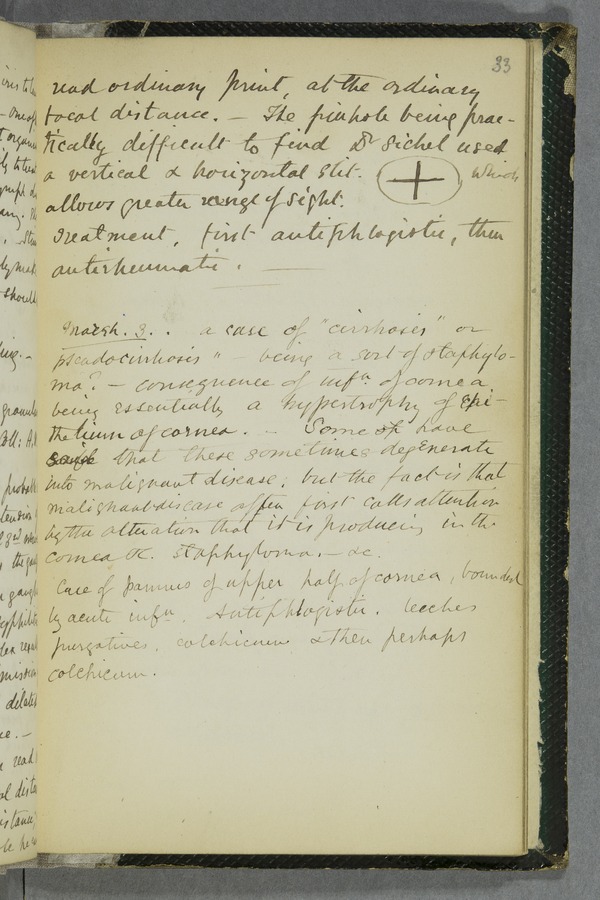 33
read ordinary print, at the ordinary
focal distance. – The pinhole being prac-
tically difficult to find Dr Sichel used
a vertical & horizontal slit. which
allows greater range of sight.
Treatment, first antiphlogistic, then
antirheumatic. —
March. 3. . a case of "cirrhosis" or
pseudocirrhosis" – being a sort of staphylo-
ma? – consequence of infn of cornea
being essentially a hypertrophy of epi-
thelium of cornea. – Some have
said that these sometimes degenerate
into malignant disease, but the fact is that
malignant disease often first calls attention
by the alteration that it is producing in the
cornea &c. staphyloma. – &c.
Case of pannus of upper half of cornea, bounded
by acute infn. Antiphlogistic. leeches
purgatives, colchicum & then perhaps
colchicum.